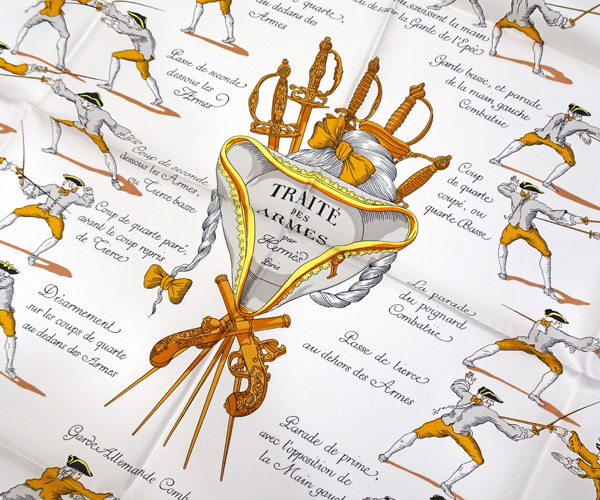 de quarte
au dedans des
Armes
saisissent la main
la Garde de l'Epée
Passe de seconde
dessous les
Armes
Garde basse, et parade
de la main gauche
Combatüe
Coup de seconde
dessous les Armes,
ou Tierce basse
Coup
de quarte
coupé, ou
quarte Basse
Coup de quarte paré,
avant le coup repris
de Tierce
TRAITÉ
DES
ARMES
par
Hermès
Paris
La parade
du poignard
Combatüe
Désarmement
sur les coups de quarte
au dedans des Armes
Passe de tierce
au dehors des Armes
Parade de prime,
avec l'opposition de
la Main gauche
Garde Allemande Comb